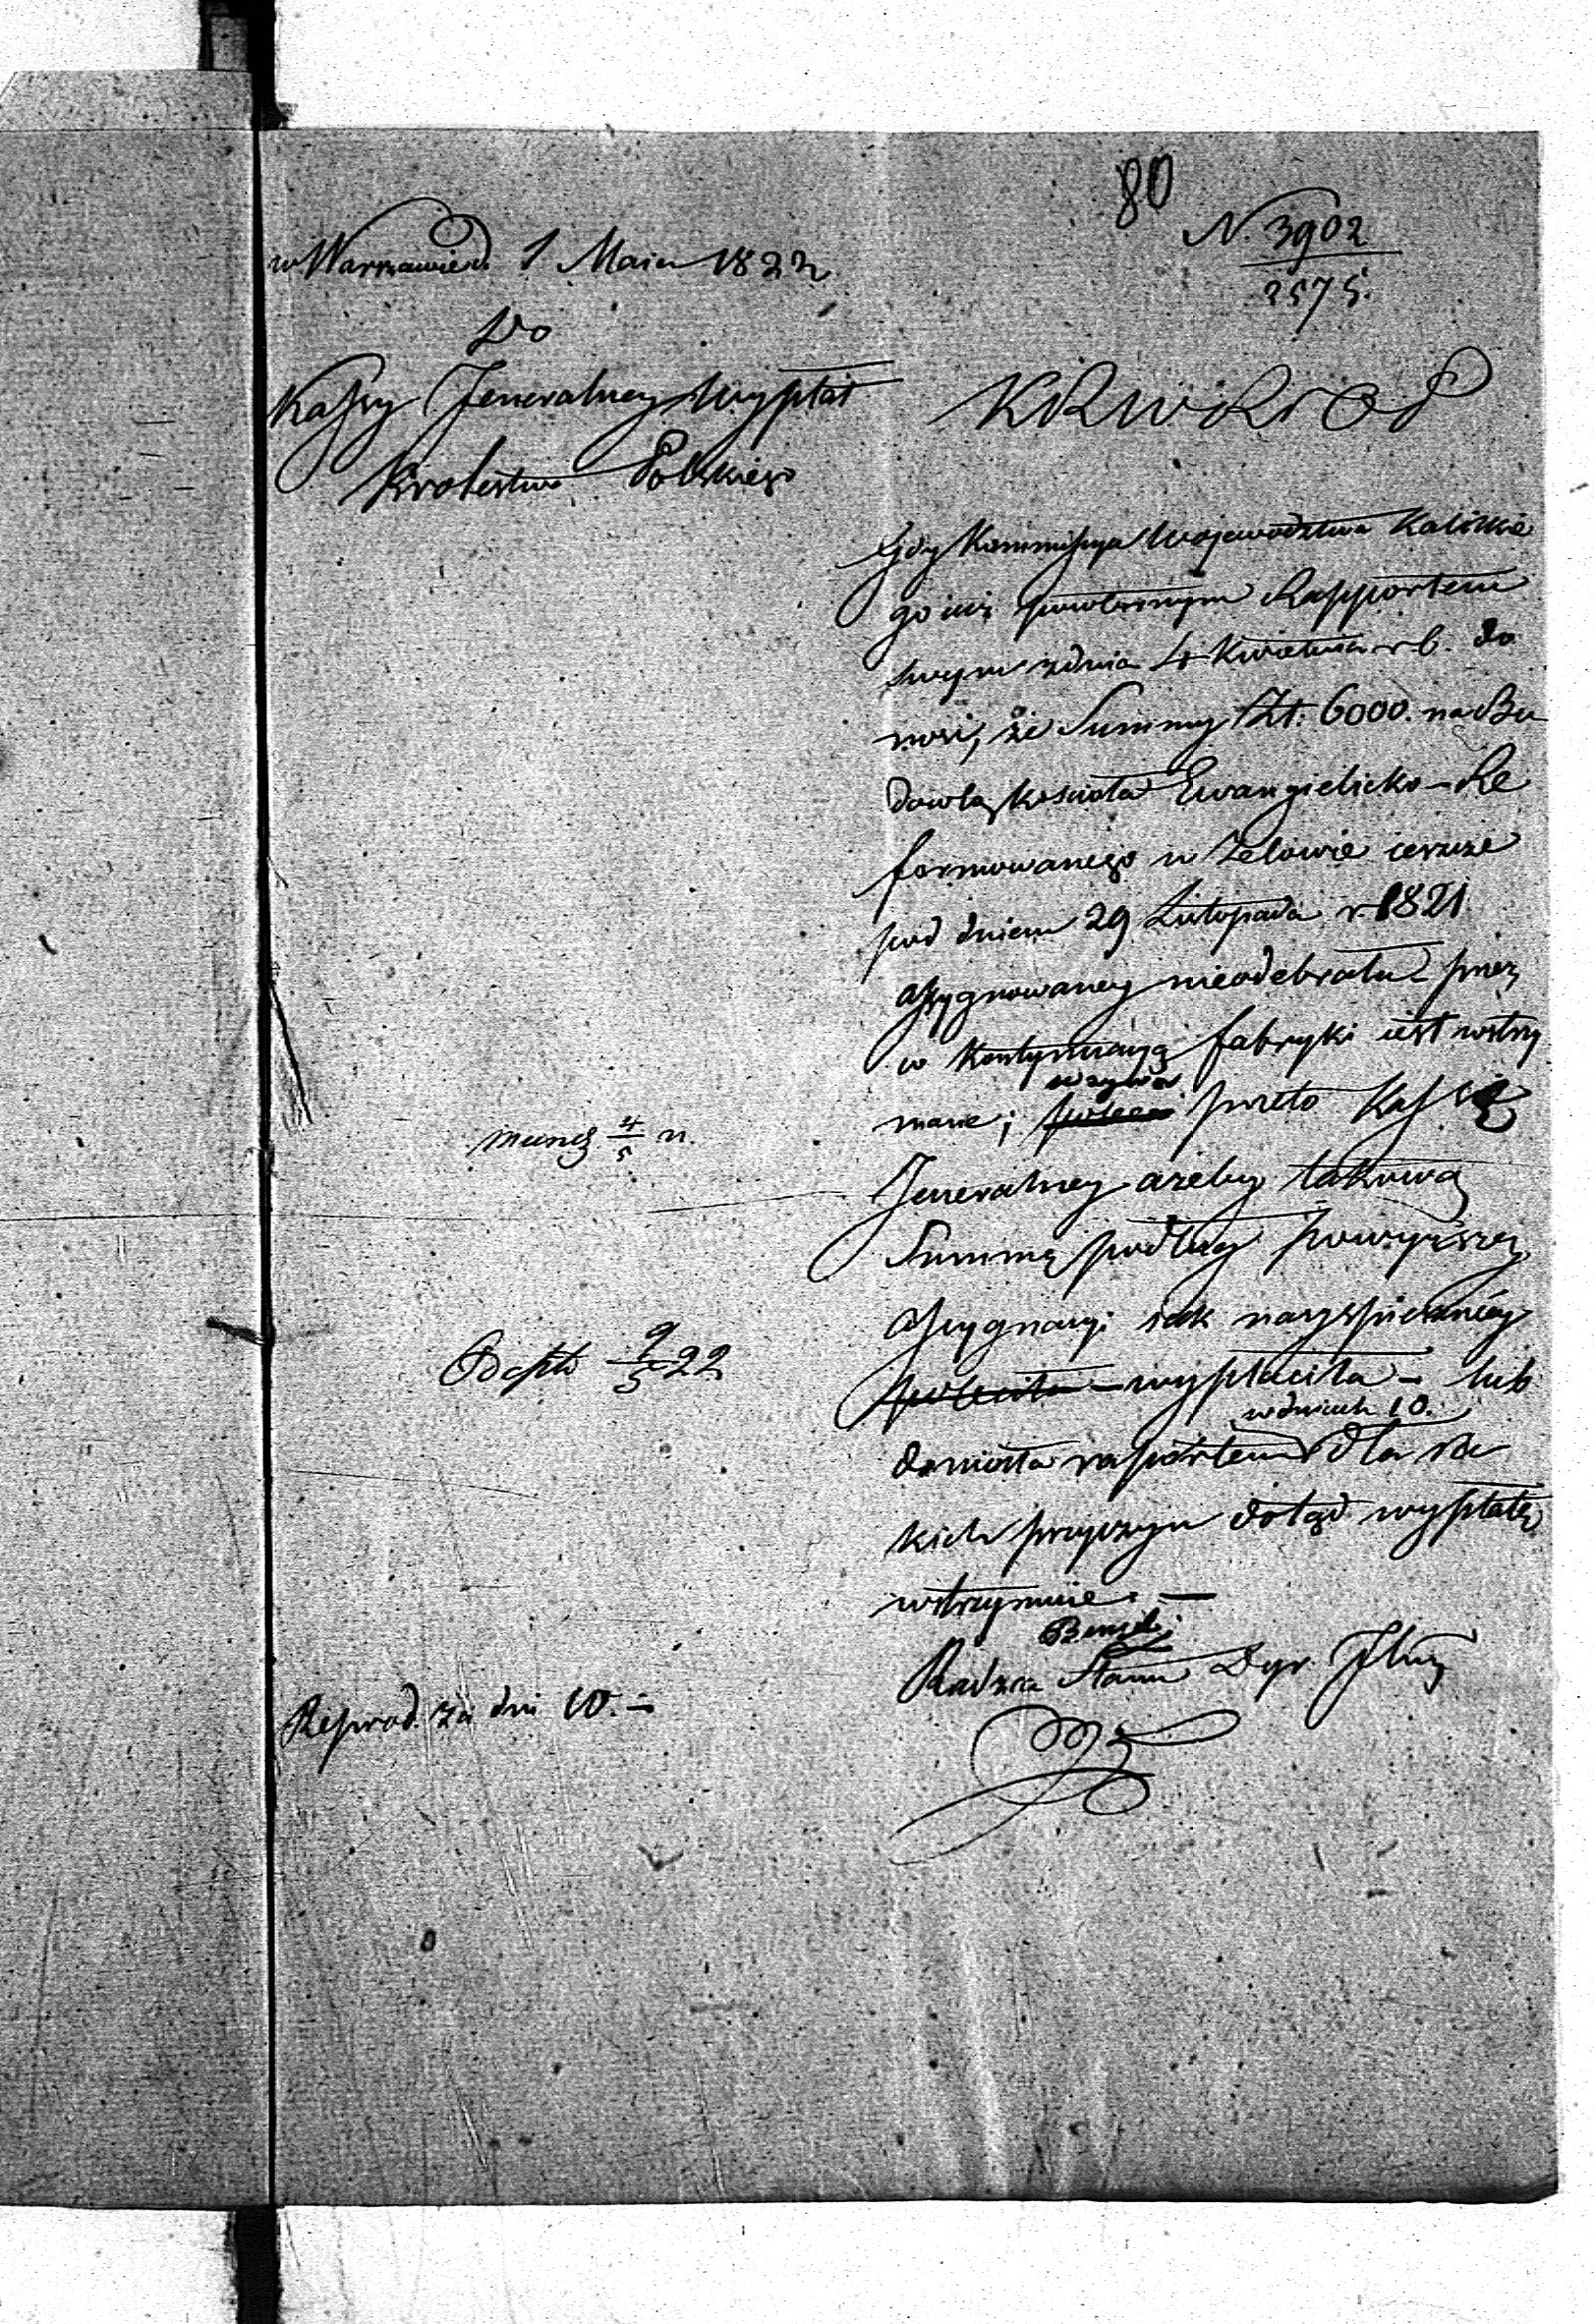 80
N. 3902
2575.
w Warszawie d. 1 Maia 1822
Do
Kassy Jeneralney Wypłat
Krolestwa Polskiego
KRWRiOP
Gdy Kommissya Województwa Kaliskie
go iuż powtórnym Rapportem
swym z dnia 4 Kwietnia r b. do
nosi, że Summy Zł: 6000. na Bu
dowlą kościoła Ewangielicko-Re
formowanego w Zelowie ieszcze
pod dniem 29 Listopada r. 1821
assygnowaney nieodebrała przez
w kontynuacyą fabryki iest wstrzy
wzywa
mane; poleca przeto Kassie
Jeneralney ażeby takową
Summę podług powyższey
assygnacyi iak nayspieszniey
poleciła - wypłaciła - lub
w dniach 10.
doniosła raportem dla ia
kich przyczyn dotąd wypłatę
wstrzymuie. -
Radzca Stanu Dyr. Jlny
4/5
Odeszło 9/5 22
Reprod. za dni 10. -